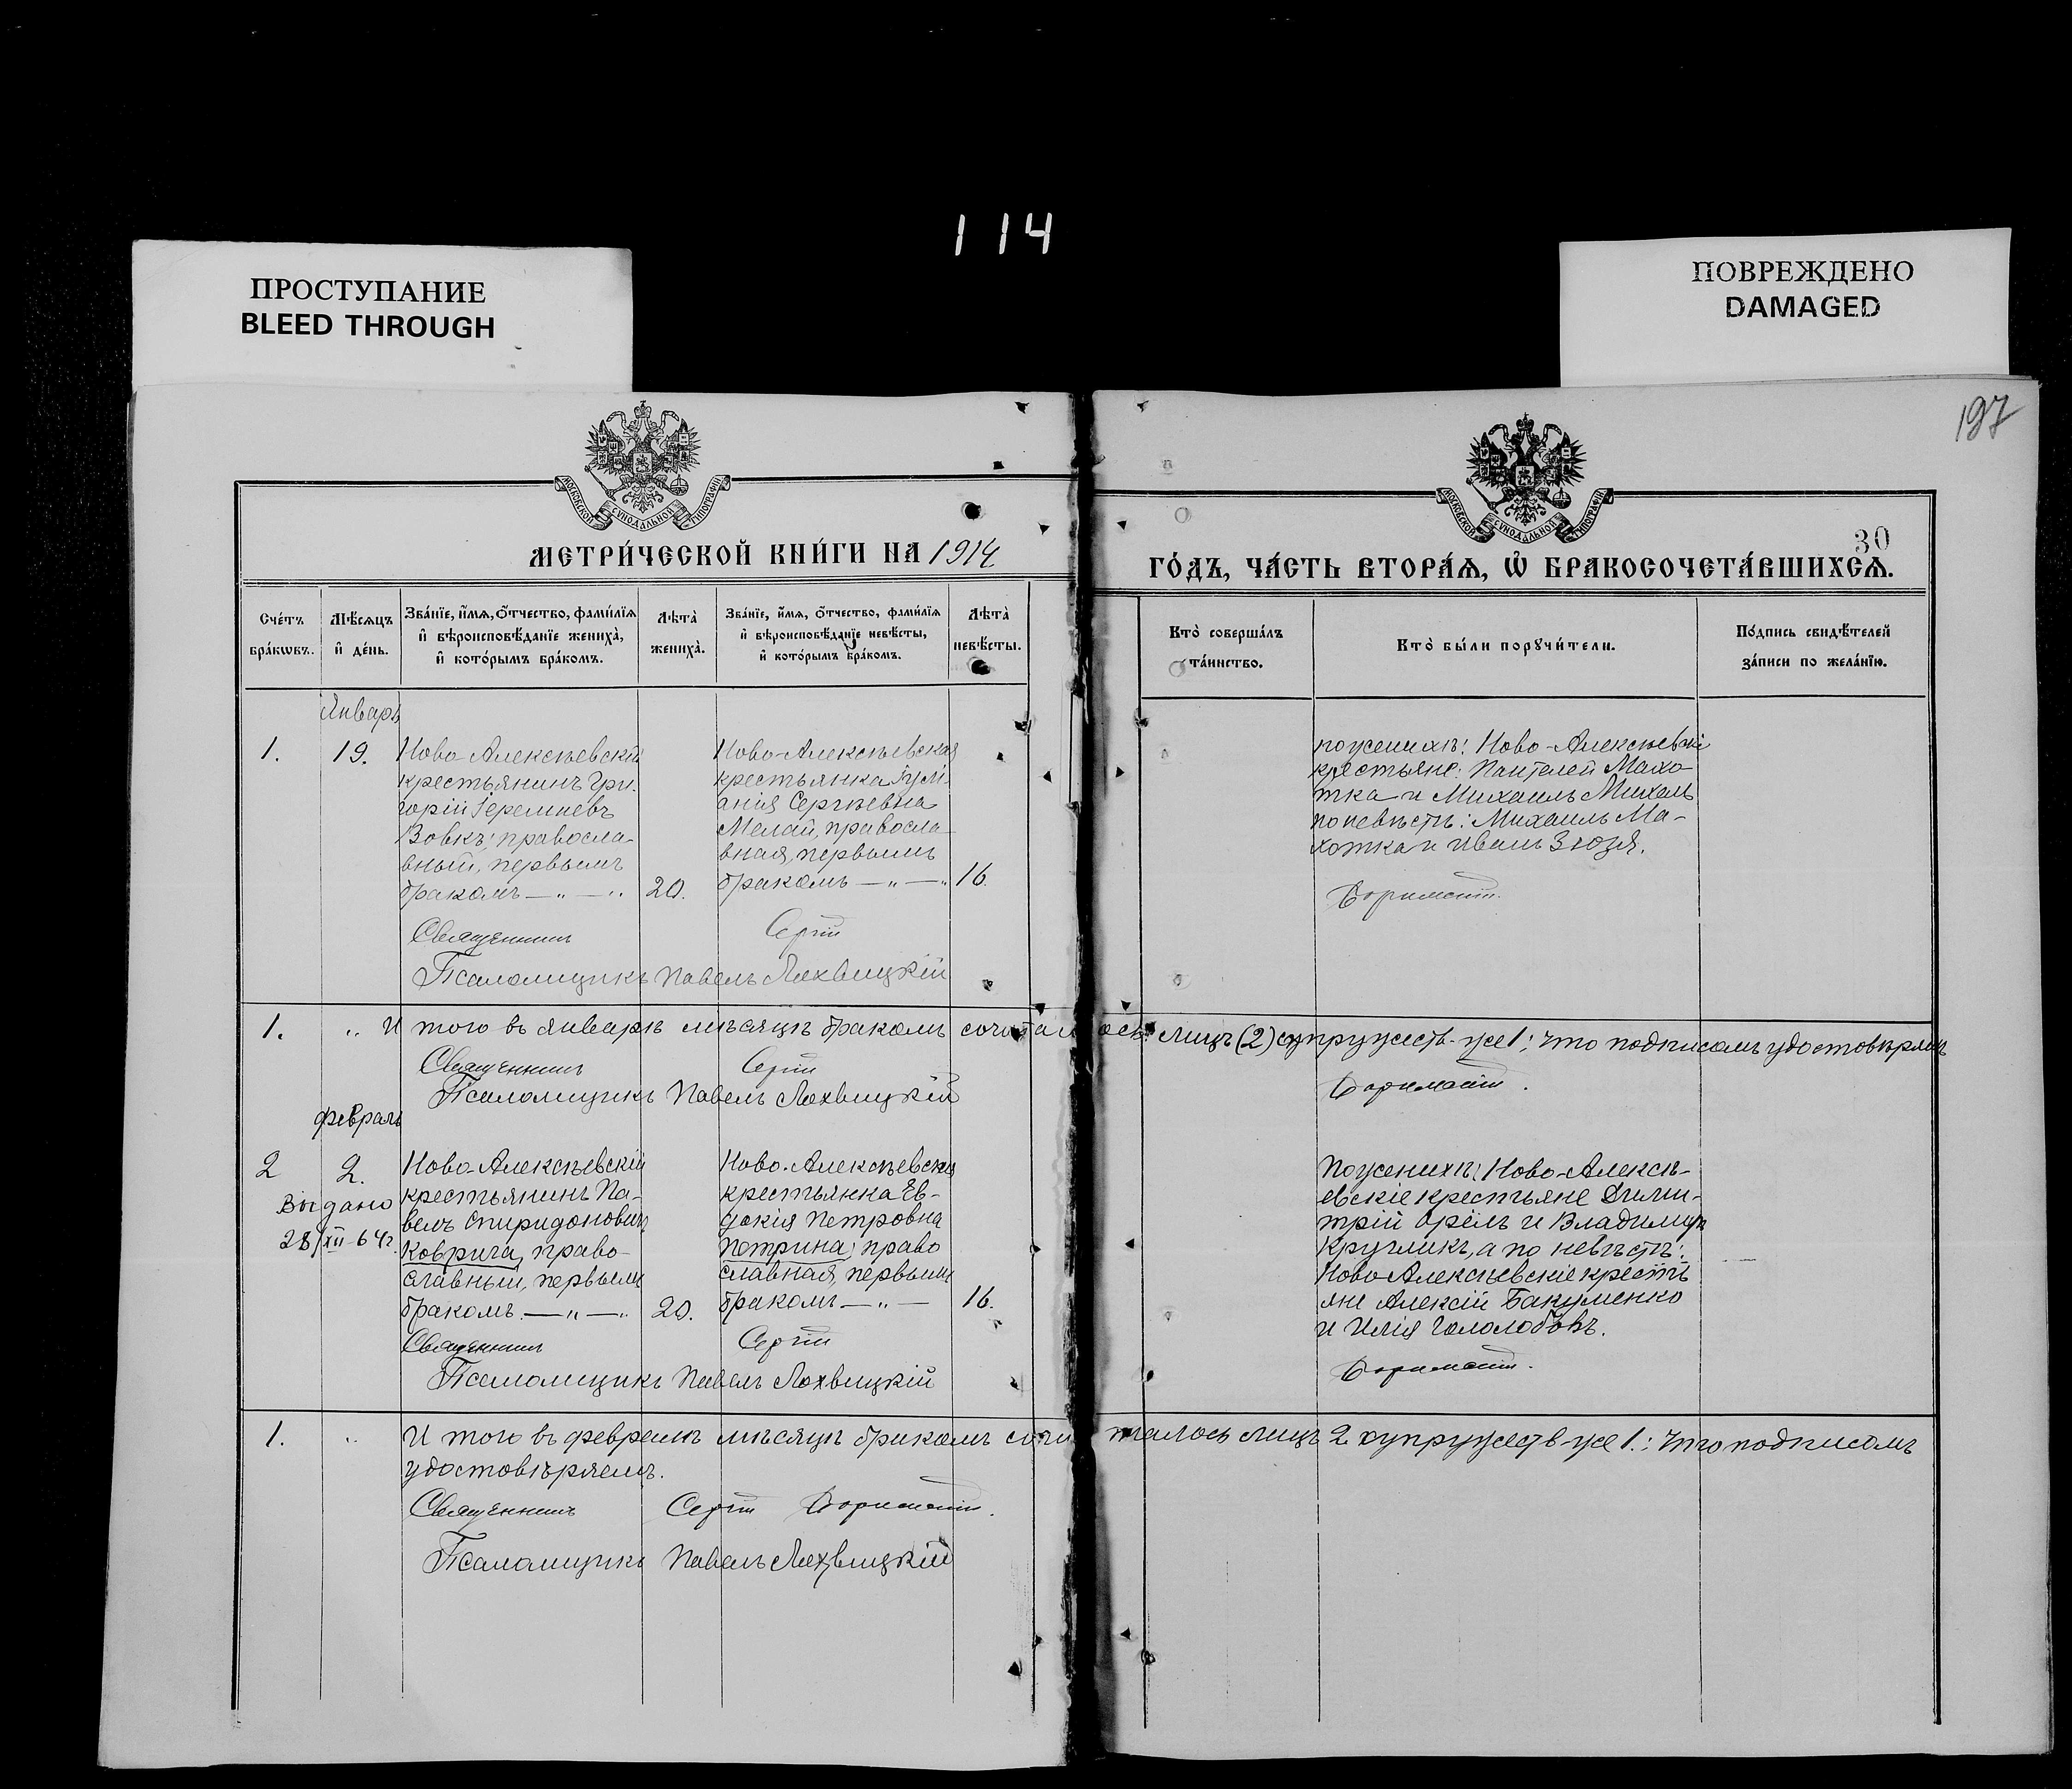 114
ПРОСТУПАНИЕ
BLEED THROUGH
ПОВРЕЖДЕНО
DAMAGED
197
МОСКОВСКОЙ СУНОДАЛЬНОЙ ТИПОГРАФІИ
МОСКОВСКОЙ СУНОДАЛЬНОЙ ТИПОГРАФІИ
30
МЕТРИ́ЧЕСКОЙ КНИ́ГИ НА 1914
ГО́ДЪ, ЧА́СТЬ ВТОРА́Ѧ, Ѽ БРАКОСОЧЕТА́ВШИХСѦ.
Сче́тъ
бра́кѡвъ.
Мѣ́сѧцъ
и҆ де́нь.
Зва́нїе, и҆́мѧ, ѻ҆́тчество, фами́лїѧ
и҆ вѣроисповѣ́данїе жениха̀,
и҆ кото́рымъ бра́комъ.
Лѣта̀
жениха̀.
Зва́нїе, и҆́мѧ, ѻ҆́тчество, фами́лїѧ
и҆ вѣроисповѣ́данїе невѣ́сты,
и҆ кото́рымъ бра́комъ.
Лѣта̀
невѣ́сты.
Кто̀ соверша́лъ
та́инство.
Кто̀ бы́ли порꙋчи́тели.
По́дпись свидѣ́телей
за́писи по жела́нїю.
Январь
1.
19.
Ново-Алексѣевскій
крестьянинъ Гри-
горій Іереміевъ
Вовкъ, правосла-
вный, первымъ
бракомъ — „ — „
20.
Ново-Алексѣевская
крестьянка
Сергѣевна
Мелай, правосла-
вная, первымъ
бракомъ — „ — „
16.
по женихѣ: Ново-Алексѣевскіе
крестьяне: Пантелей Махо-
тка и Михаилъ
по невѣстѣ: Михаилъ Ма-
хотка и Иванъ Зюзя.
Священникъ Сергій
Псаломщикъ Павелъ Лохвицкій
1. „ И того въ январѣ мѣсяцѣ бракомъ сочеталось лицъ (2) супружеств-же 1; что подписомъ удостовѣряемъ
Священникъ Сергій
Псаломщикъ Павелъ Лохвицкій
Февраль
2
2.
Выдано
28/XII-64г.
Ново-Алексѣевскій
крестьянинъ Па-
велъ Спиридоновичъ
Коврига, право-
славный, первымъ
бракомъ. — „ — „
20.
Ново-Алексѣевская
крестьянка Ев-
докія Петровна
Петрина, право
славная, первымъ
бракомъ — „ —
16.
По женихѣ: Ново-Алексѣ-
евскіе крестьяне Дими-
трій Орелъ и Владимиръ
Кругликъ, а по невѣстѣ:
Ново Алексѣевскіе кресть
яне Алексій Бакуменко
и Илія Гололобовъ.
Священникъ Сергій
Псаломщикъ Павелъ Лохвицкій
1. „ И того въ февралѣ мѣсяцѣ бракомъ сочеталось лицъ 2 супружеств-же 1.; что подписомъ
удостовѣряемъ.
Священникъ Сергій
Псаломщикъ Павелъ Лохвицкій